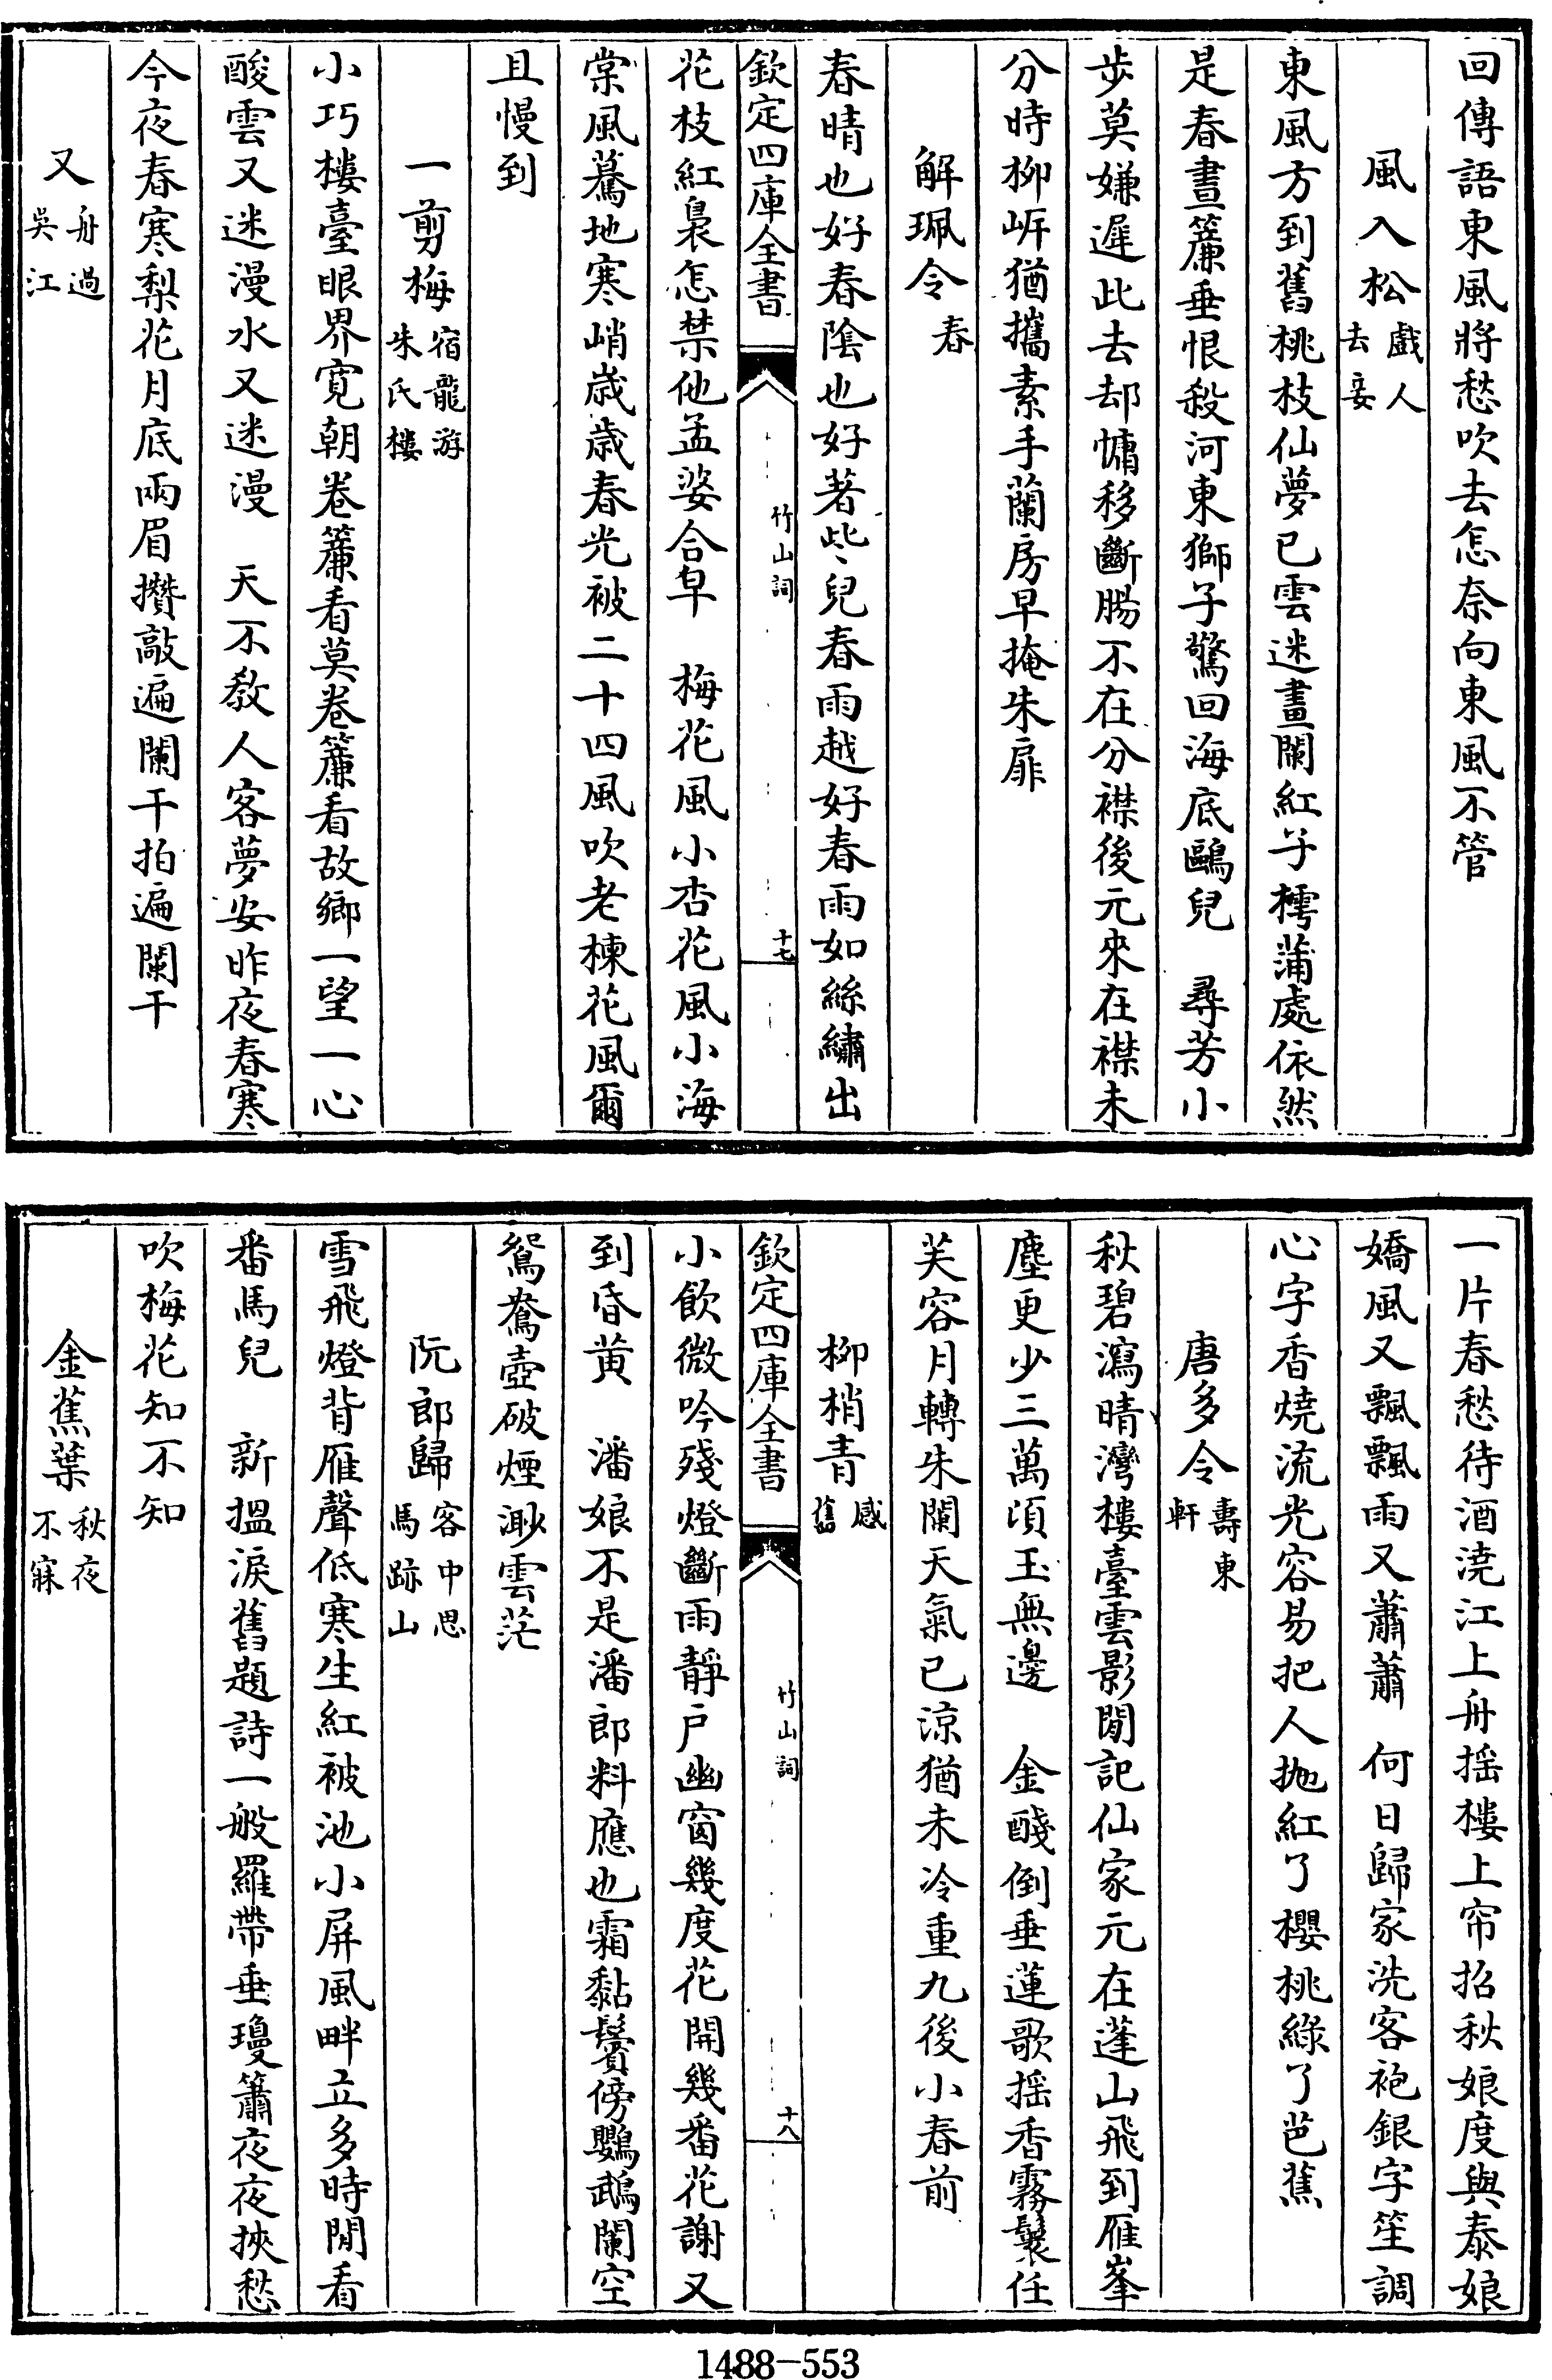 回傳語東風將愁吹去怎奈向東風不管
風入松戲人去妾
東風方到舊桃枝仙夢已雲迷畫闌紅子樗蒲處依然
是春晝簾垂恨殺河東獅子驚回海底鷗兒　尋芳小
步莫嫌遲此去却慵移斷腸不在分襟後元來在襟未
分時柳岍猶攜素手蘭房早掩朱扉
解珮令春
春晴也好春陰也好著些兒春雨越好春雨如絲繡出
欽定四庫全書
竹山詞
十七
花枝紅裊怎禁他孟婆合皁　梅花風小杏花風小海
棠風驀地寒峭歲歲春光被二十四風吹老楝花風爾
且慢到
一剪梅宿龍游朱氏樓
小巧樓臺眼界寛朝卷簾看莫卷簾看故鄉一望一心
酸雲又迷漫水又迷漫　天不教人客夢安昨夜春寒
今夜春寒梨花月底兩眉攢敲遍闌干拍遍闌干
又舟過吳江
一片春愁待酒澆江上舟揺樓上帘招秋娘度與泰娘
嬌風又飄飄雨又蕭蕭　何日歸家洗客袍銀字笙調
心字香燒流光容易把人抛紅了櫻桃綠了芭蕉
唐多令壽東軒
秋碧瀉晴灣樓臺雲影閒記仙家元在蓬山飛到雁峯
塵更少三萬頃玉無邊　金醆倒垂蓮歌揺香霧鬟任
芙容月轉朱闌天氣已涼猶未冷重九後小春前
柳梢青感舊
欽定四庫全書
竹山詞
十八
小飲微吟殘燈斷雨靜戸幽窗幾度花開幾番花謝又
到昏黄　潘娘不是潘郎料應也霜黏鬢傍鸚鵡闌空
鴛鴦壺破煙渺雲茫
阮郎歸客中思馬跡山
雪飛燈背雁聲低寒生紅被池小屏風畔立多時閒看
番馬兒　新搵淚舊題詩一般羅帶垂瓊簫夜夜挾愁
吹梅花知不知
金蕉葉秋夜不寐
1488—553